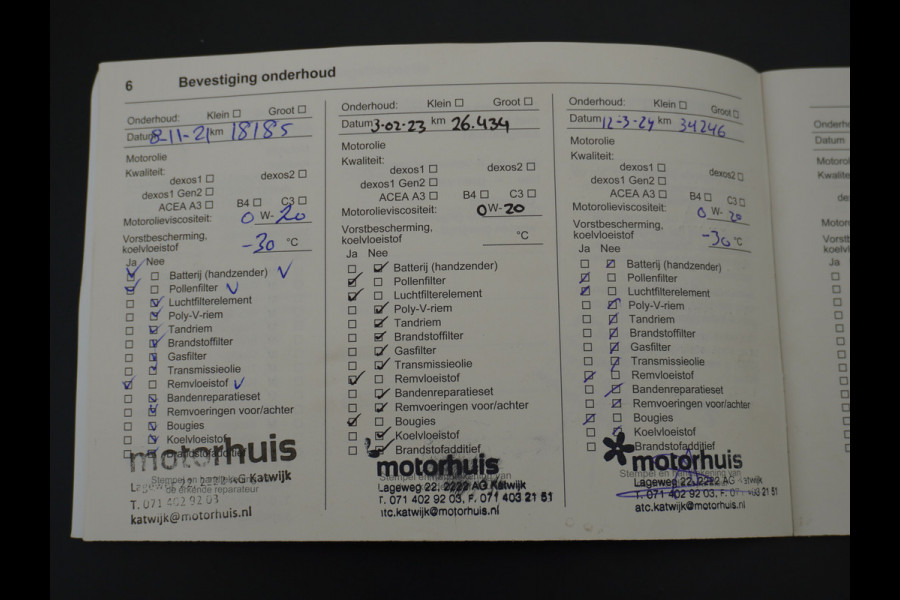 6 Bevestiging onderhoud
Onderhoud: Klein Groot
Datum 8-11-21 km 18185
Motorolie
Kwaliteit:
dexos1 dexos2
dexos1 Gen2
ACEA A3 B4 C3
Motorolieviscositeit: 0 W- 20
Vorstbescherming,
koelvloeistof -30 °C
Ja Nee
Batterij (handzender)
Pollenfilter
Luchtfilterelement
Poly-V-riem
Tandriem
Brandstoffilter
Gasfilter
Transmissieolie
Remvloeistof
Bandenreparatieset
Remvoeringen voor/achter
Bougies
Koelvloeistof
Brandstofadditief
motorhuis
Katwijk
de erkende reparateur
T. 071 402 92 03
katwijk@motorhuis.nl
Onderhoud: Klein Groot
Datum 3-02-23 km 26.434
Motorolie
Kwaliteit:
dexos1 dexos2
dexos1 Gen2
ACEA A3 B4 C3
Motorolieviscositeit: 0 W- 20
Vorstbescherming,
koelvloeistof °C
Ja Nee
Batterij (handzender)
Pollenfilter
Luchtfilterelement
Poly-V-riem
Tandriem
Brandstoffilter
Gasfilter
Transmissieolie
Remvloeistof
Bandenreparatieset
Remvoeringen voor/achter
Bougies
Koelvloeistof
Brandstofadditief
motorhuis
Lageweg 22, 2222 AG Katwijk
T. 071 402 92 03, F. 071 403 21 51
atc.katwijk@motorhuis.nl
Onderhoud: Klein Groot
Datum 12-3-24 km 34246
Motorolie
Kwaliteit:
dexos1 dexos2
dexos1 Gen2
ACEA A3 B4 C3
Motorolieviscositeit: 0 W- 20
Vorstbescherming,
koelvloeistof -30 °C
Ja Nee
Batterij (handzender)
Pollenfilter
Luchtfilterelement
Poly-V-riem
Tandriem
Brandstoffilter
Gasfilter
Transmissieolie
Remvloeistof
Bandenreparatieset
Remvoeringen voor/achter
Bougies
Koelvloeistof
Brandstofadditief
motorhuis
Lageweg 22, 2222 AG Katwijk
T. 071 402 92 03, F. 071
atc.katwijk@motorhuis.nl
Datum
Ja